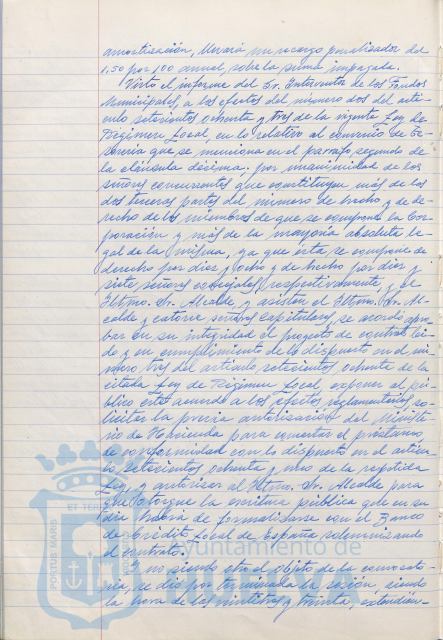 amortización, llevará un recargo penalizador del
1,50 por 100 anual, sobre la suma impagada.
Visto el informe del Sr. Interventor de los Fondos
Municipales, a los efectos del número dos del artí-
culo setecientos ochenta y tres de la vigente Ley de
Régimen Local en lo relativo al convenio de Te-
sorería que se menciona en el párrafo segundo de
la cláusula décima. por unanimidad de los
señores concurrentes que constituyen más de las
dos terceras partes del número de hecho y de de-
recho de los miembros de que se compone la Cor-
poración y más de la mayoría absoluta le-
gal de la misma, ya que ésta se compone de
derecho por diez y ocho y de hecho por diez y
siete señores concejales, respectivamente, y el
Iltmo. Sr. Alcalde y asisten el Iltmo. Sr. Al-
calde y catorce señores capitulares, se acordó apro-
bar en su integridad el proyecto de contrato leí-
do y en cumplimiento de lo dispuesto en el nú-
mero tres del artículo setecientos ochenta de la
citada Ley de Régimen Local, exponer al pú-
blico este acuerdo a los efectos reglamentarios so-
licitar la previa autorización del Ministe-
rio de Hacienda para concertar el préstamo,
de conformidad con lo dispuesto en el artícu-
lo setecientos ochenta y uno de la repetida
Ley y autorizar al Iltmo. Sr. Alcalde para
que otorgue la escritura pública que en su
día habrá de formalizarse con el Banco
de Crédito Local de España solemnizando
el contrato.
Y no siendo otro el objeto de la convocato-
ria, se dió por terminada la sesión, siendo
la hora de las veintitrés y treinta, extendién-
PORTUS MARIS
ET TERRAE
Ayuntamiento de
HUELVA